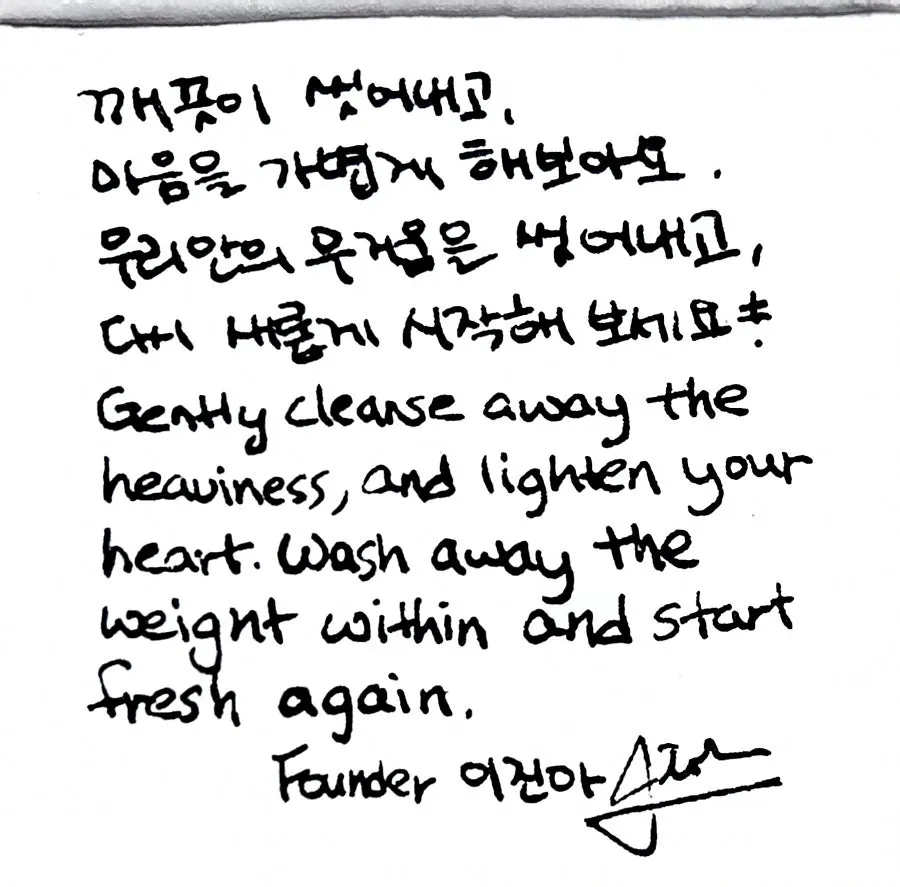 깨끗이 씻어내고,
마음을 가볍게 해보아요.
우리안의 무거움을 씻어내고,
다시 새롭게 시작해 보세요!
Gently cleanse away the
heaviness, and lighten your
heart. Wash away the
weight within and start
fresh again.
Founder 이건아